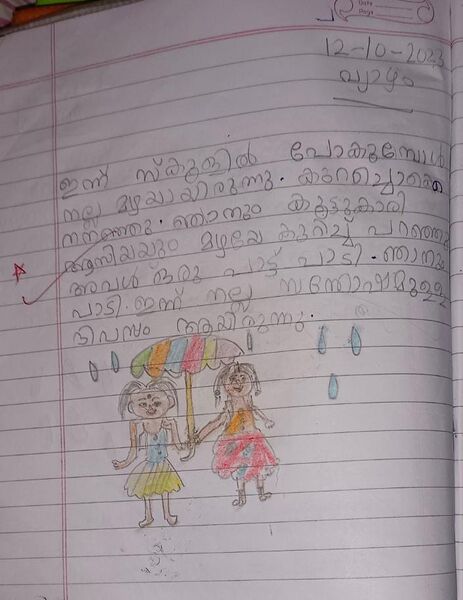 Date
Page
12-10-2023
വ്യാഴം
ഇന്ന് സ്കൂളിൽ പോകുമ്പോൾ
നല്ല മഴയായിരുന്നു. കുറച്ചൊക്കെ
നനഞ്ഞു. ഞാനും കൂട്ടുകാരി
ആസിയയും മഴയേ കുറിച്ച് പറഞ്ഞു
അവൾ ഒരു പാട്ട് പാടി. ഞാനും
പാടി. ഇന്ന് നല്ല സന്തോഷമുള്ള
ദിവസം ആയിരുന്നു.